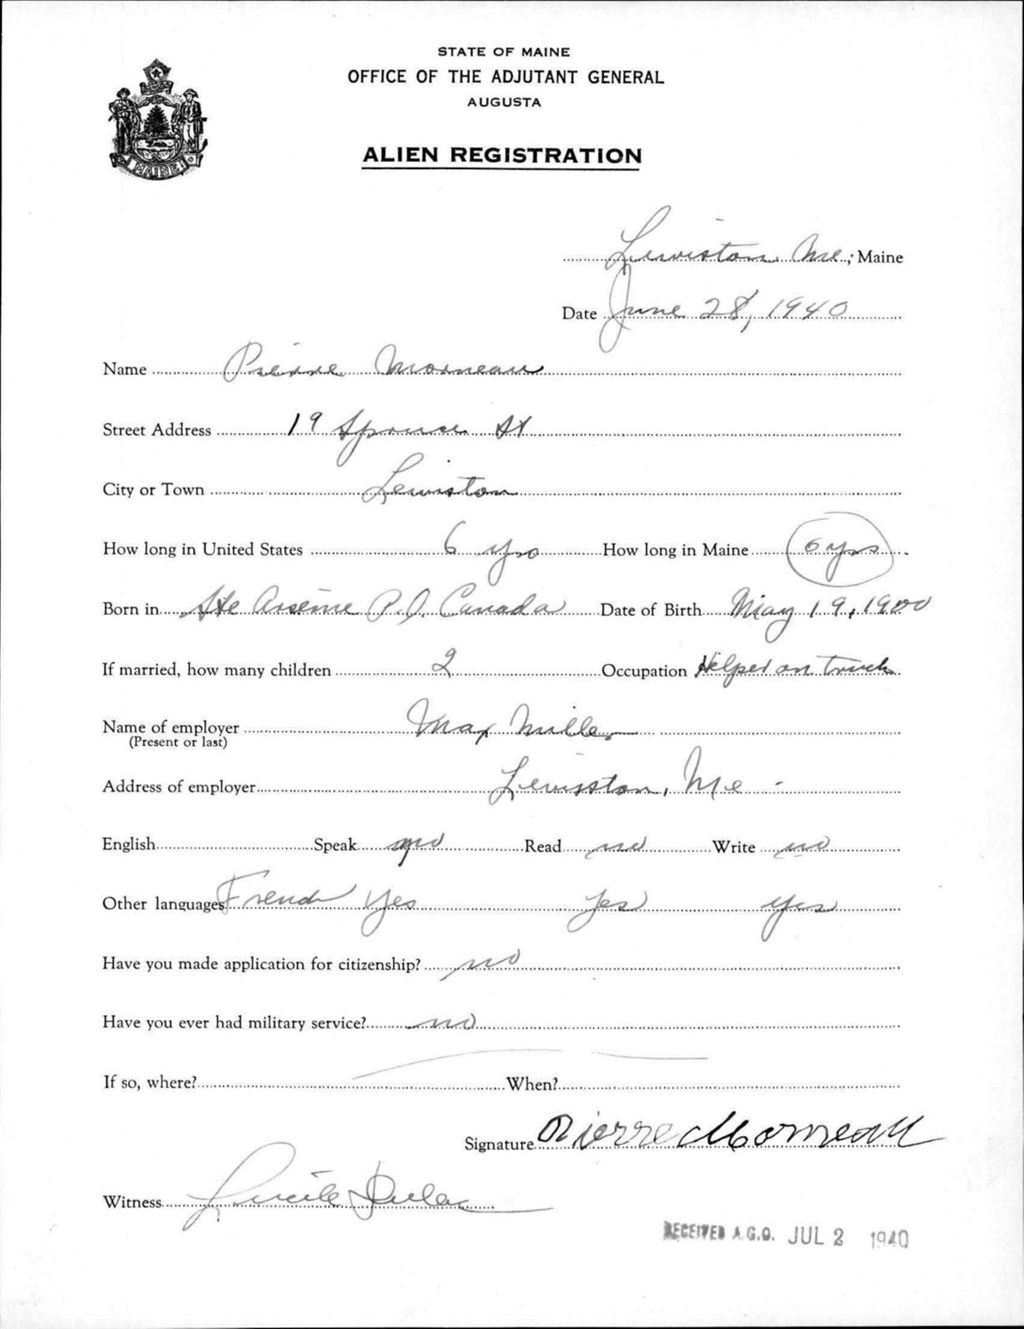 STATE OF MAINE
OFFICE OF THE ADJUTANT GENERAL
AUGUSTA
ALIEN REGISTRATION
MAINE
Lewiston Me, Maine
Date June 28, 1940
Name Pierre Morneau
Street Address 19 Spruce St
City or Town Lewiston
How long in United States 6 yrs How long in Maine 6 yrs
Born in Ste Arsène P.Q. Canada Date of Birth May 19, 1900
If married, how many children 2 Occupation Helper on truck
Name of employer Max Miller
(Present or last)
Address of employer Lewisston, Me -
English Speak no Read no Write no
Other languages French Yes yes yes
Have you made application for citizenship? no
Have you ever had military service? no
If so, where? When?
Signature Pierre Morneau
Witness Lucile Dulac
RECEIVED A.G.O. JUL 2 1940